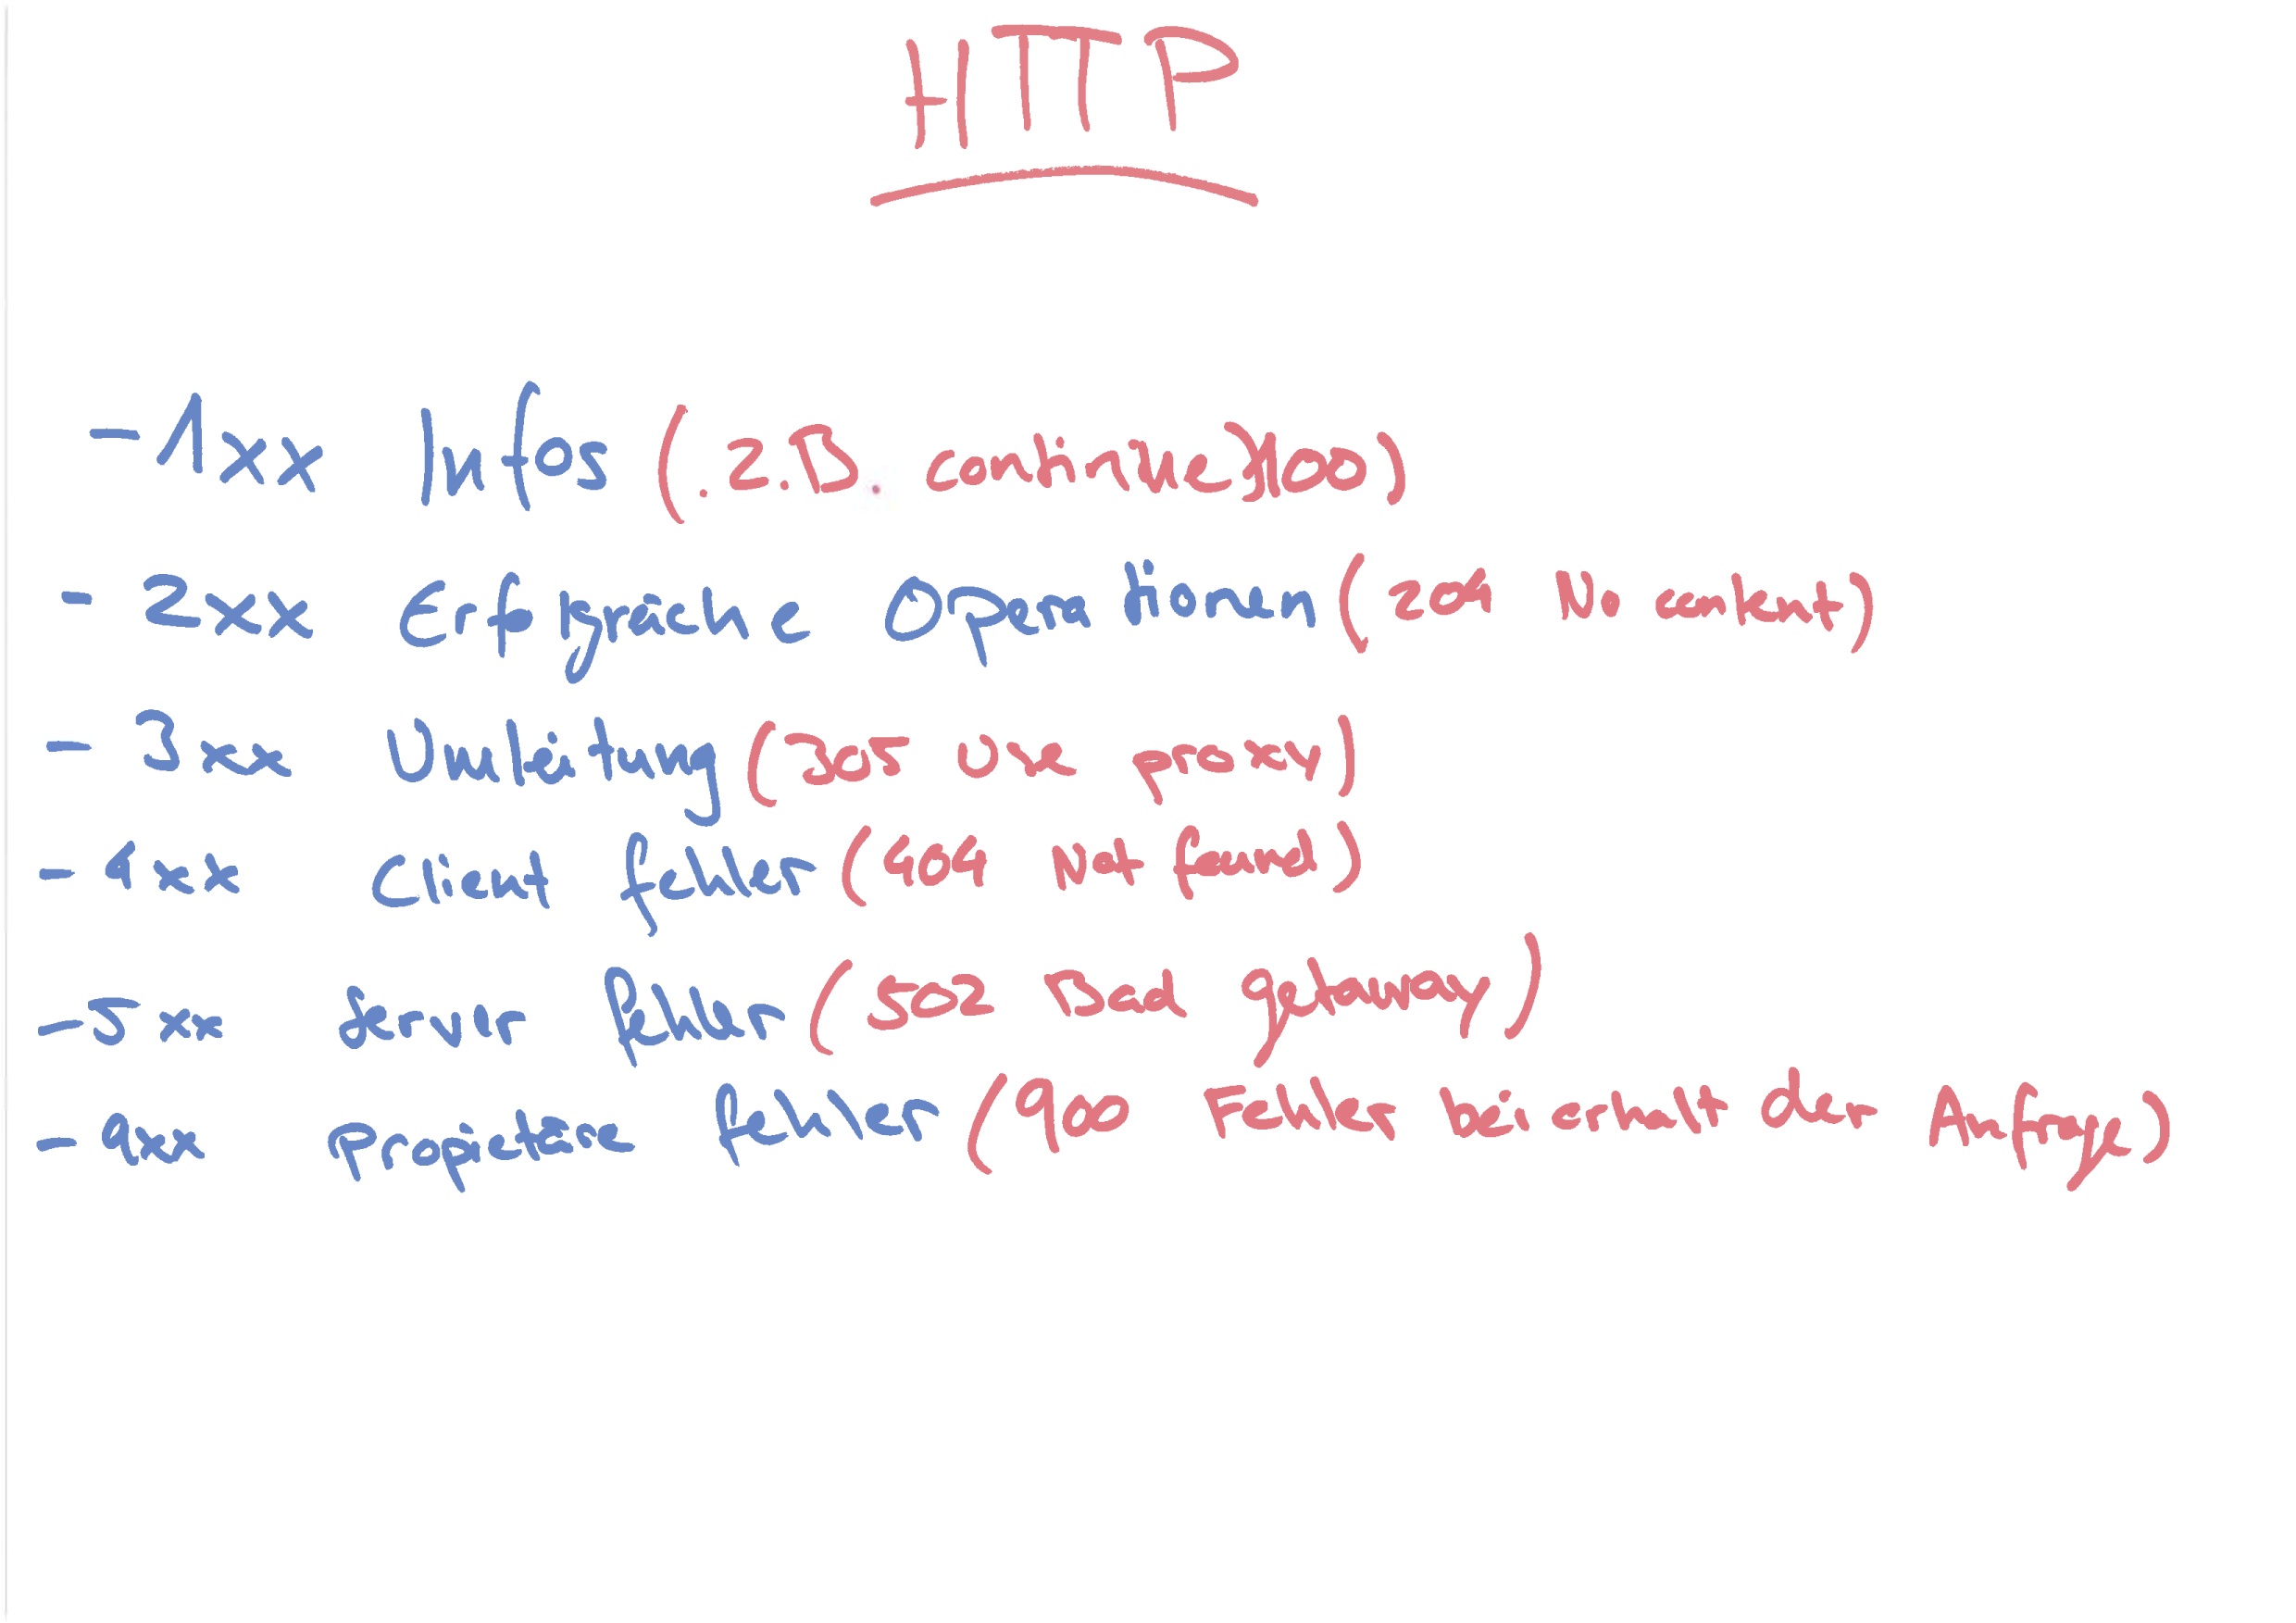 HTTP
- 1xx Infos (. z.B. continue) 100)
- 2xx Erfolgreiche Operationen ( 204 No content)
- 3xx Umleitung (305 Use proxy)
- 4xx Client fehler (404 Not found)
- 5xx Server fehler (502 Bad getaway)
- 9xx Propietäre fehler (900 Fehler bei erhalt der Anfrage)